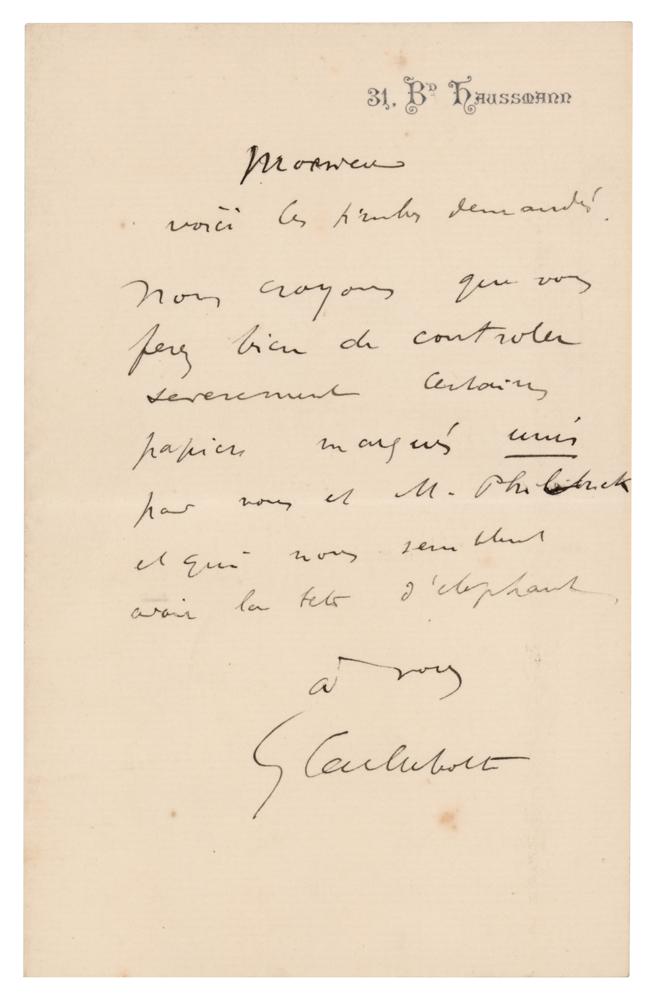 31, Bᴰ Haussmann
Monsieur
voici les timbres demandés.
Nous croyons que vous
ferez bien de controler
severement certains
papiers marqués unis
par vous et M. Philbrick
et qui nous semblent
avoir la tete d'elephant,
a vous
G Caillebotte